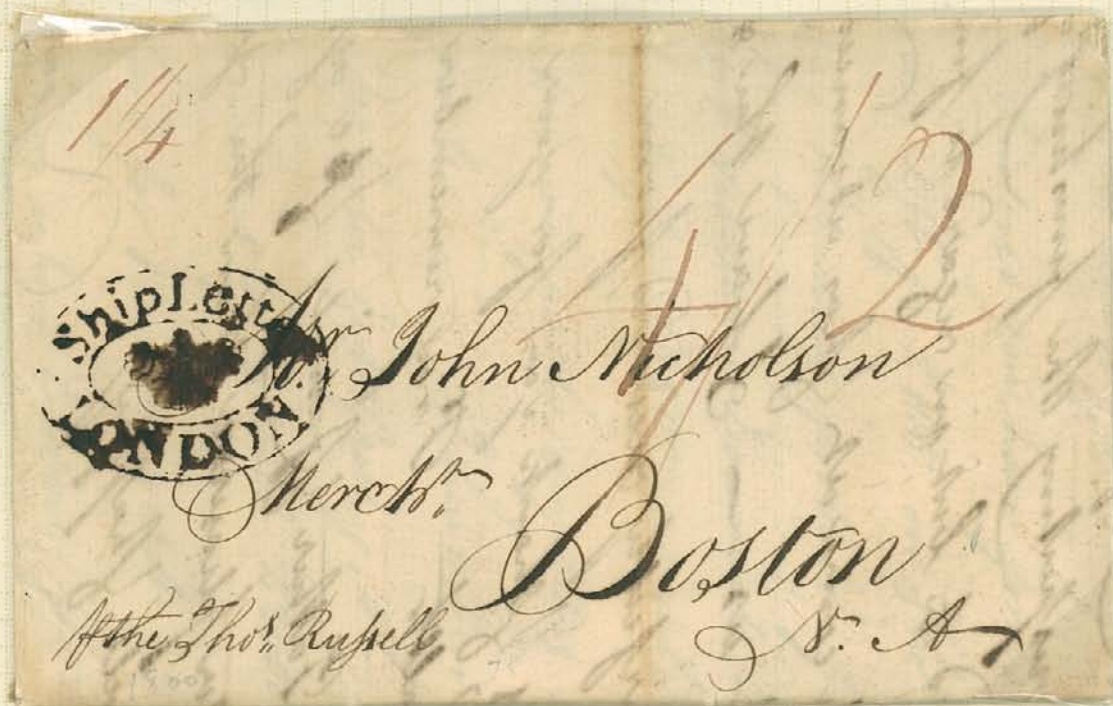 1/4
4/2
Ship Letter
LONDON
Mr. John Nicholson
Mercht.
Boston
N. A
the Thos. Russell
1800